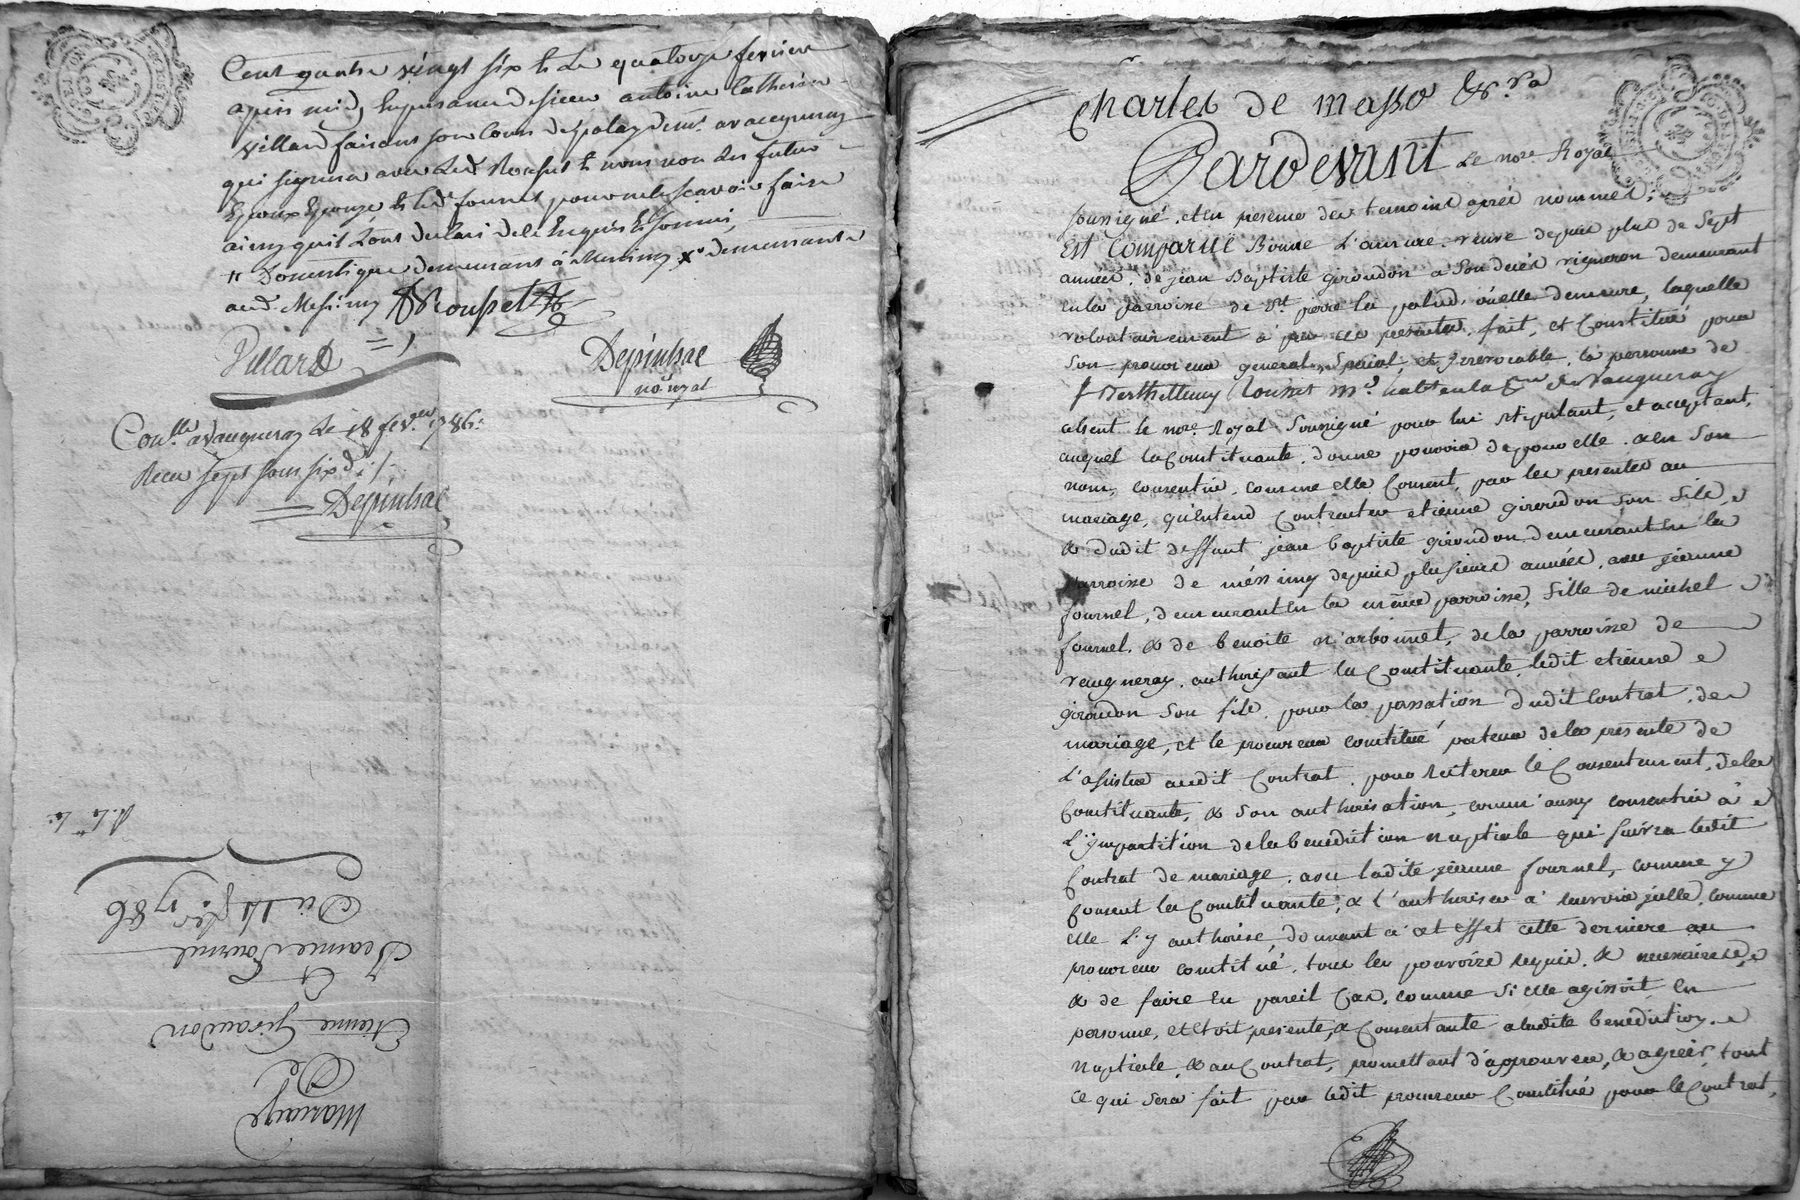 Cent quatre vingt six & le quatorze fevrier
apres midy En presence de sieur antoine Catherin
Villard faisant son Cours de palaz demt a vaugneray
qui signera avec led Rousset & nous non les futur
Epoux Epouze & led fournel pour ne le scavoir faire
ainsy quil L'ont declaré de ce Enquis & sommé,
" Domestique demeurant a Messimy x demeurante
aud Messimy Rousset
Villard
Depinhac
no. royal
Conllé a vaugneray Le 18 fevrier 1786:
Recu sept sous six d
Depinhac
Du 14 fer 1786
Jeanne Fournel
&
Etienne Giraudon
De
Mariage
Charles de Masso &ra
Pardevant Le nore Royal
soussigné, et en presence des temoins après nommés,
Est Comparuë Bonne L'aurure, veuve depuis plus de Sept
années, de jean Baptiste giroudon a Son deces vigneron demeurant
en la parroisse de St. pierre la palud, où elle demeure, laquelle
volontairement a par ces presentes, fait, et Constitué pour
Son procureur general, Special, et Irrevocable, la personne de
Berthellemy Rousset Md habt en la de Vaugneray
absent le nore Royal Soussigné pour lui stipulant, et acceptant,
auquel la Constituante, donne pouvoir de pour elle, & en Son
nom, consentir, comme elle Consent, par les presentes au
mariage, qu'Entend Contracter etienne giroudon son fils,
& dudit deffunt jean baptiste giroudon demeurant En la
parroisse de méssimy depuis plusieurs années, avec jéanne
fournel, demeurant En la même parroisse, fille de michel
fournel, & de benoite n'arbonnet, de la parroisse de
vaugneray, authorisant la Constituante, ledit etienne
giroudon Son fils, pour la passation dudit Contrat de
mariage, et le procureur constitué porteur de la presente de
L'assister audit Contrat, pour Reiterer le Consentement, de la
Constituante, & Son authorisation, comm'aussy consentir à
L'ympartition de la benediction nuptiale qui suivra ledit
Contrat de mariage, avec ladite jéanne fournel, comme y
Consent la Constituante, & l'authoriser a' recevoir jcelle, comme
elle L'y authorise, donnant a' cet effet cette derniere au
procureur constitué, tous les pouvoirs requis, & necessaires,
& de faire En pareil Cas, comme Si elle agissoit En
personne, et Etoit presente, & Consentante a ladite benediction
nuptiale, & au Contrat, promettant d'approuver, & agréér tout
ce qui Sera fait par ledit procureur Constitué pour le Contrat,